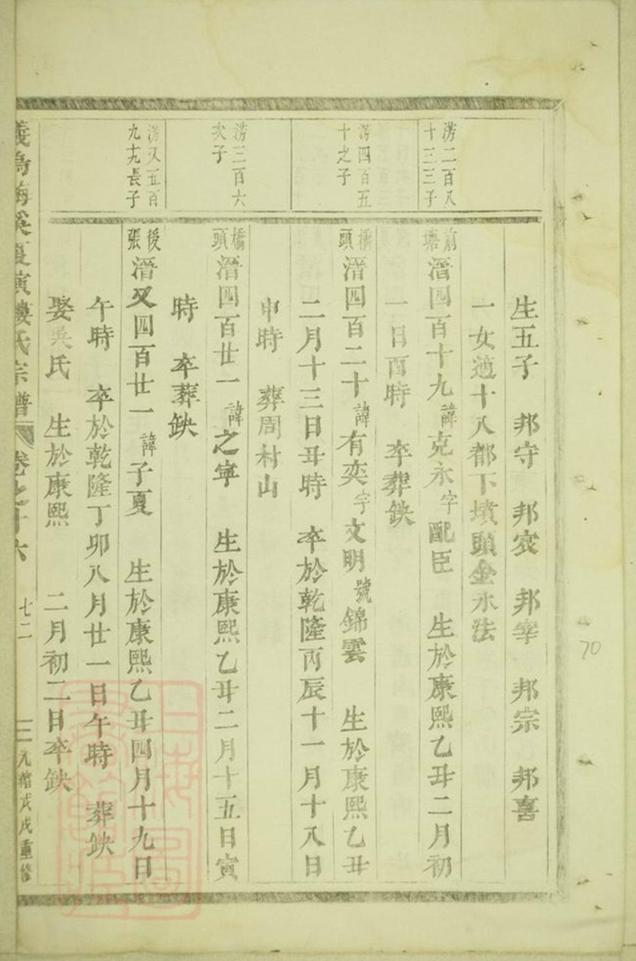 生五子 邦守 邦𡧳 邦宰 邦宗 邦喜
一女適十八都下墳頭金永法
滂二百八
十三三子
前塘 溍四百十九 諱 克永 字 配臣 生於康熙乙丑二月初
一日酉時 卒葬缺
滂四百五
十之子
橋頭 溍四百二十 諱 有奕 字 文明 號 錦雲 生於康熙乙丑
二月十三日丑時 卒於乾隆丙辰十一月十八日
申時 葬周村山
滂三百六
次子
橋頭 溍四百廿一 諱 之寧 生於康熙乙丑二月十五日寅
時 卒葬缺
滂又五百
九十九長子
後張 溍又四百廿一 諱 子夏 生於康熙乙丑四月十九日
午時 卒於乾隆丁卯八月廿一日午時 葬缺
娶吳氏 生於康熙 二月初二日卒缺
義烏 溪夏演樓氏宗譜 卷之十六 七二 光緒戊戌重修
70